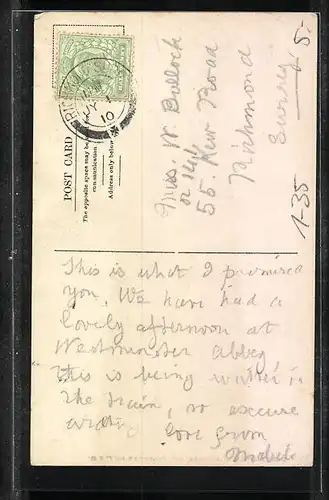 POST CARD
The opposite space may be
communication
Address only below
Miss. W. Bullock
55. New Road
Richmond
Surrey
5.-
1-35
This is what I promised
you, We have had a
lovely afternoon at
Westminster Abbey
This is being written in
the train, so excuse
writing love from
Mabel